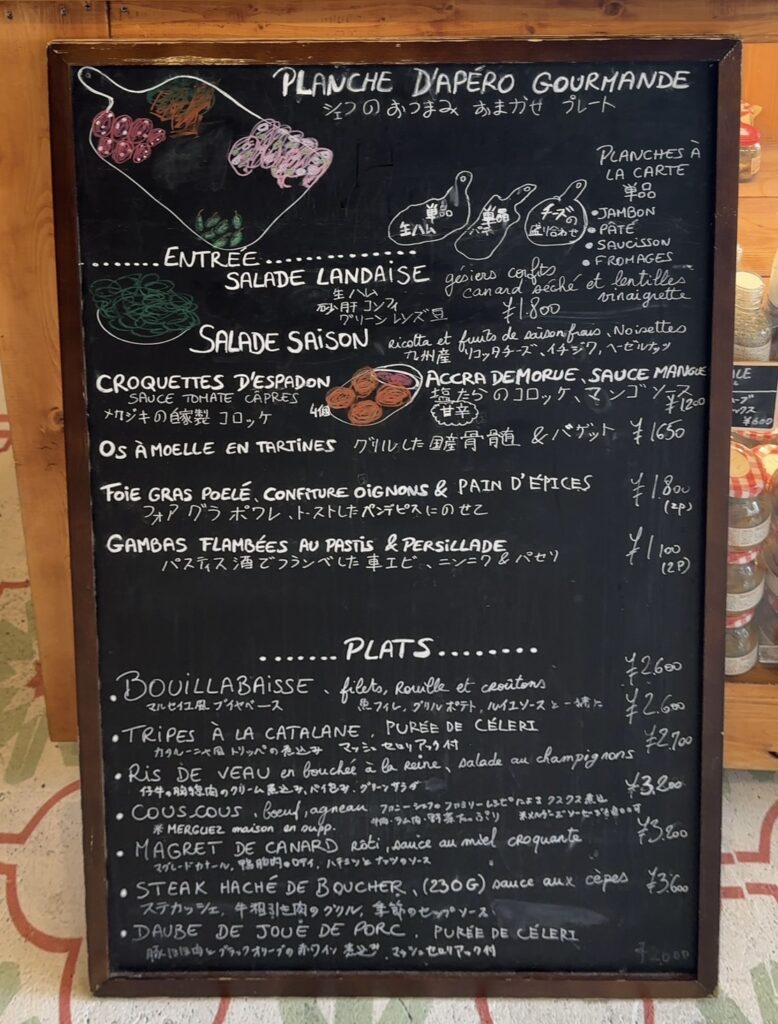 PLANCHE D'APÉRO GOURMANDE
シェフのおつまみ おまかせ プレート
PLANCHES À
LA CARTE
単品
• JAMBON
• PÂTÉ
• SAUCISSON
• FROMAGES
単品
生ハム
単品
チーズの
盛り合わせ
ENTRÉE
SALADE LANDAISE
gésiers confits
canard séché et lentilles
vinaigrette
生ハム
砂肝 コンフィ
グリーン レンズ豆
¥1.800
SALADE SAISON
ricotta et fruits de saison frais, Noisettes
九州産 リコッタチーズ、イチジク、ヘーゼルナッツ
CROQUETTES D'ESPADON
SAUCE TOMATE CÂPRES
メカジキの自家製 コロッケ
4個
ACCRA DE MORUE, SAUCE MANGUE
塩たらのコロッケ、マンゴソース
甘辛
¥1200
OS À MOELLE EN TARTINES グリルした国産骨髄 & バゲット ¥1650
FOIE GRAS POELÉ, CONFITURE OIGNONS & PAIN D'ÉPICES
フォア グラ ポワレ、トーストしたパンデピスにのせて
¥1.800
(2P)
GAMBAS FLAMBÉES AU PASTIS & PERSILLADE
パスティス酒でフランベした車エビ、ニンニク & パセリ
¥1100
(2P)
PLATS
• BOUILLABAISSE, filets, Rouille et croûtons ¥2600
マルセイユ風 ブイヤベース 魚フィレ、グリル ポテト、ルイユソースと一緒に
• TRIPES À LA CATALANE, PURÉE DE CÉLERI ¥2.600
カタルーニャ風 トリッパの煮込み マッシュ セロリアック付
• RIS DE VEAU en bouchée à la reine, salade au champignons ¥2.700
仔牛の胸腺肉のクリーム煮込み、パイ包み、グリーンサラダ
• COUS COUS, boeuf, agneau ¥3.200
* MERGUEZ maison en supp.
• MAGRET DE CANARD rôti, sauce au miel croquante ¥3.200
マグレードカナール、鴨胸肉のロティ、ハチミツとナッツのソース
• STEAK HACHÉ DE BOUCHER, (230G) sauce aux cèpes ¥3.600
ステカッシェ、牛粗引き肉のグリル、季節のセップソース
• DAUBE DE JOUE DE PORC, PURÉE DE CÉLERI
豚ほほ肉とブラックオリーブの赤ワイン煮込み マッシュセロリアック付
¥600